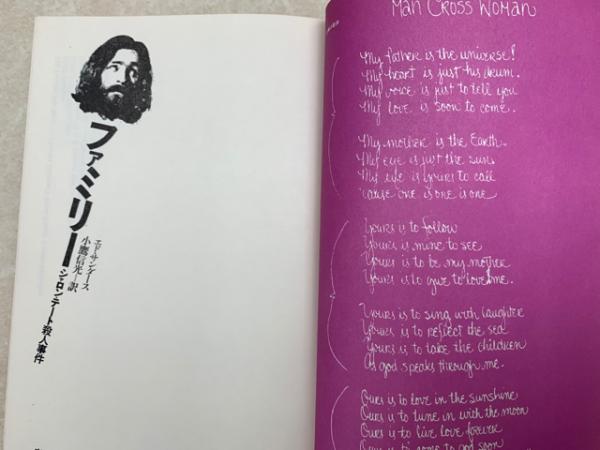 ファミリー
シャロン・テート殺人事件
エド・サンダース
小鷹信光＝訳
MAN CROSS WOMAN
My father is the universe!
My heart is just his drum.
My voice is just to tell you
My love is soon to come.
My mother is the Earth.
My eye is just the sun
My eye is yours to call
'cause one is one is one
Yours is to follow
Yours is mine to see
Yours is to be my mother
Yours is to give to love me.
Yours is to sing with laughter
Yours is to reflect the sea
Yours is to take the children
As god speaks through me.
Ours is to love in the sunshine
Ours is to tune in with the moon
Ours is to live love forever
Ours is to come to god soon